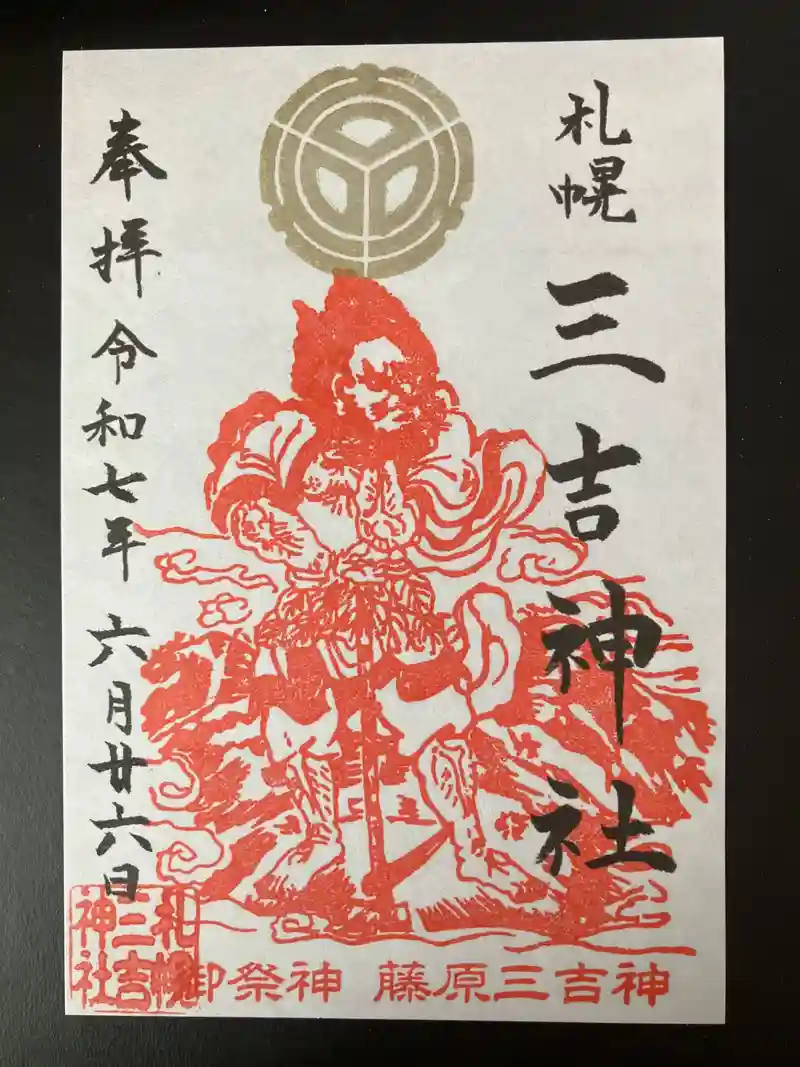 札幌 三吉神社
奉拝 令和七年 六月廿六日
札幌
三吉
神社
御祭神 藤原三吉神